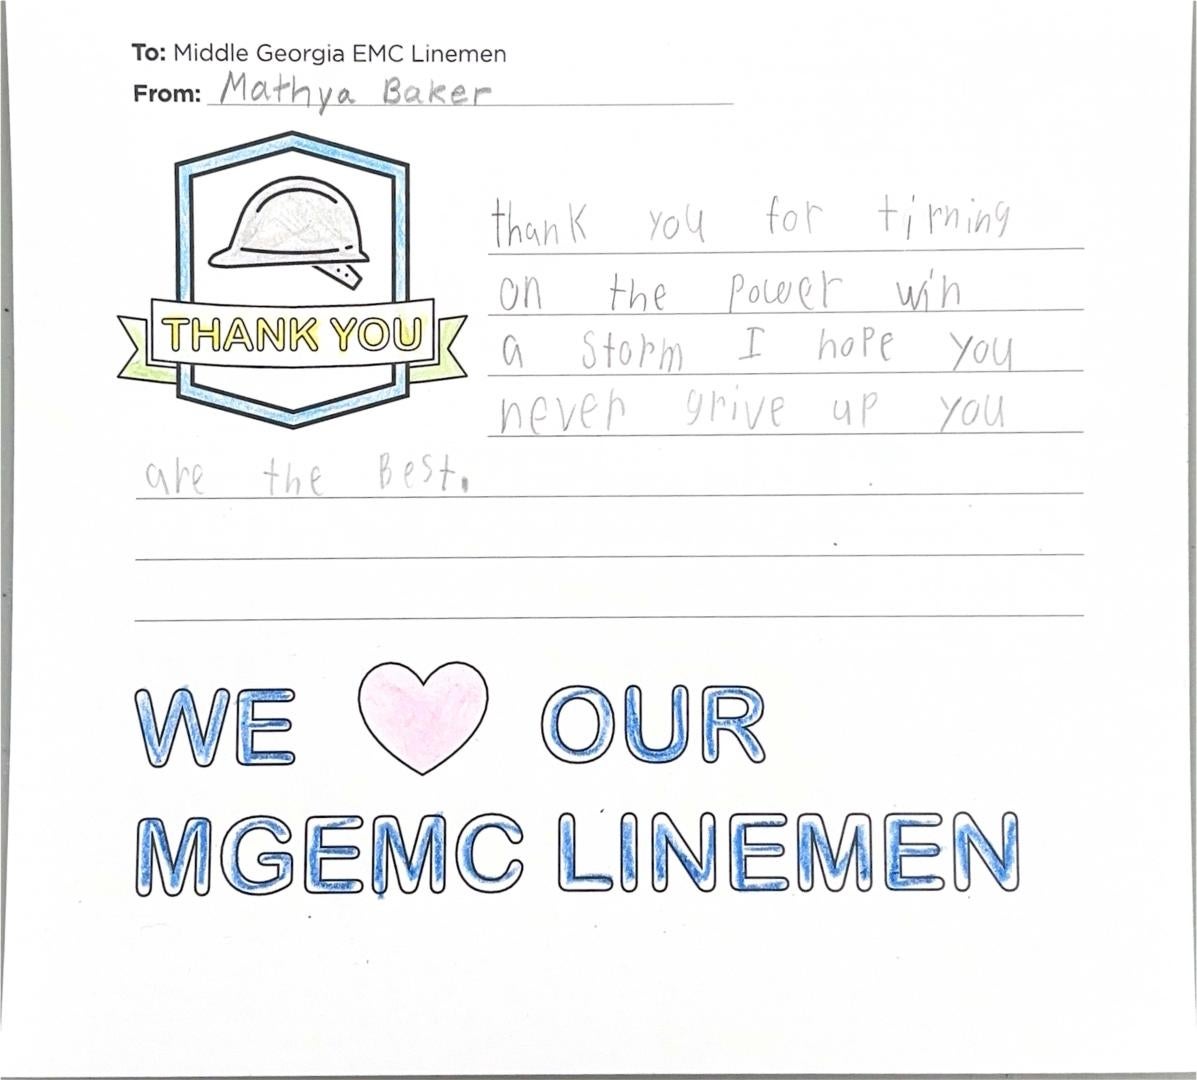 To: Middle Georgia EMC Linemen
From: Mathya Baker
THANK YOU
thank you for tirning
on the power win
a storm I hope you
never grive up you
are the Best.
WE OUR
MGEMC LINEMEN